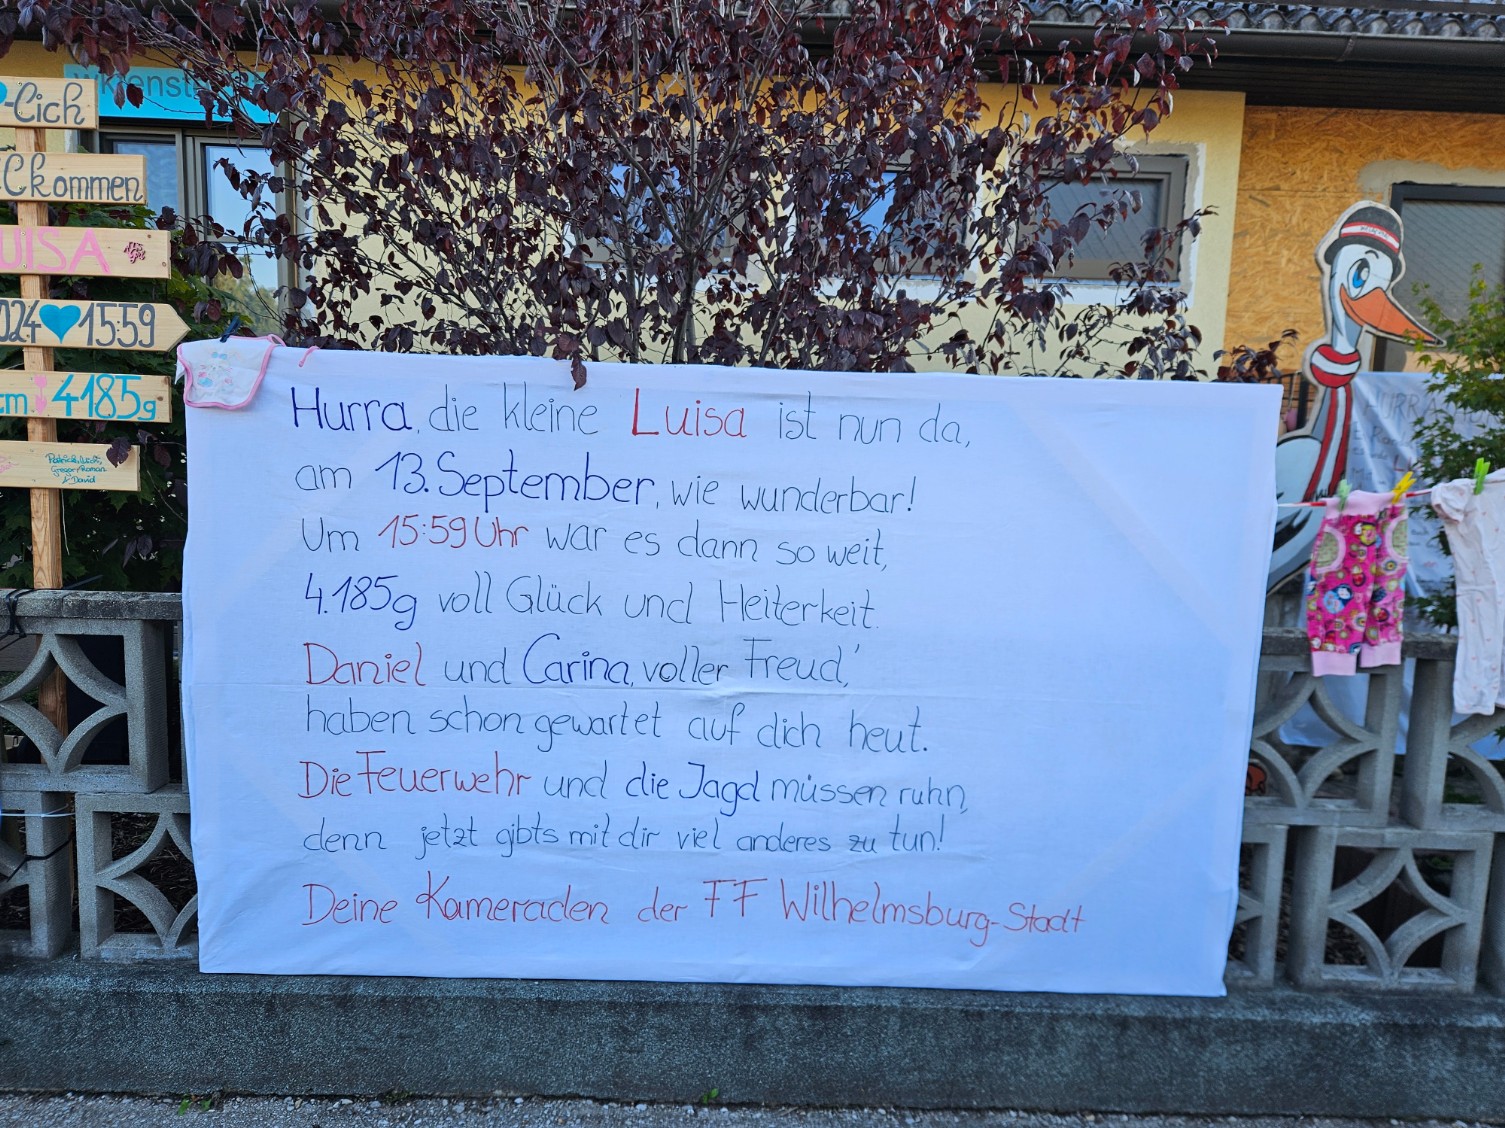 -Lich
LLkommen
UISA
024 15:59
cm 4185g
Hurra, die kleine Luisa ist nun da,
am 13. September, wie wunderbar!
Um 15:59 Uhr war es dann so weit,
4.185g voll Glück und Heiterkeit.
Daniel und Carina, voller Freud',
haben schon gewartet auf dich heut.
Die Feuerwehr und die Jagd müssen ruhn,
denn jetzt gibts mit dir viel anderes zu tun!
Deine Kameraden der FF Wilhelmsburg-Stadt